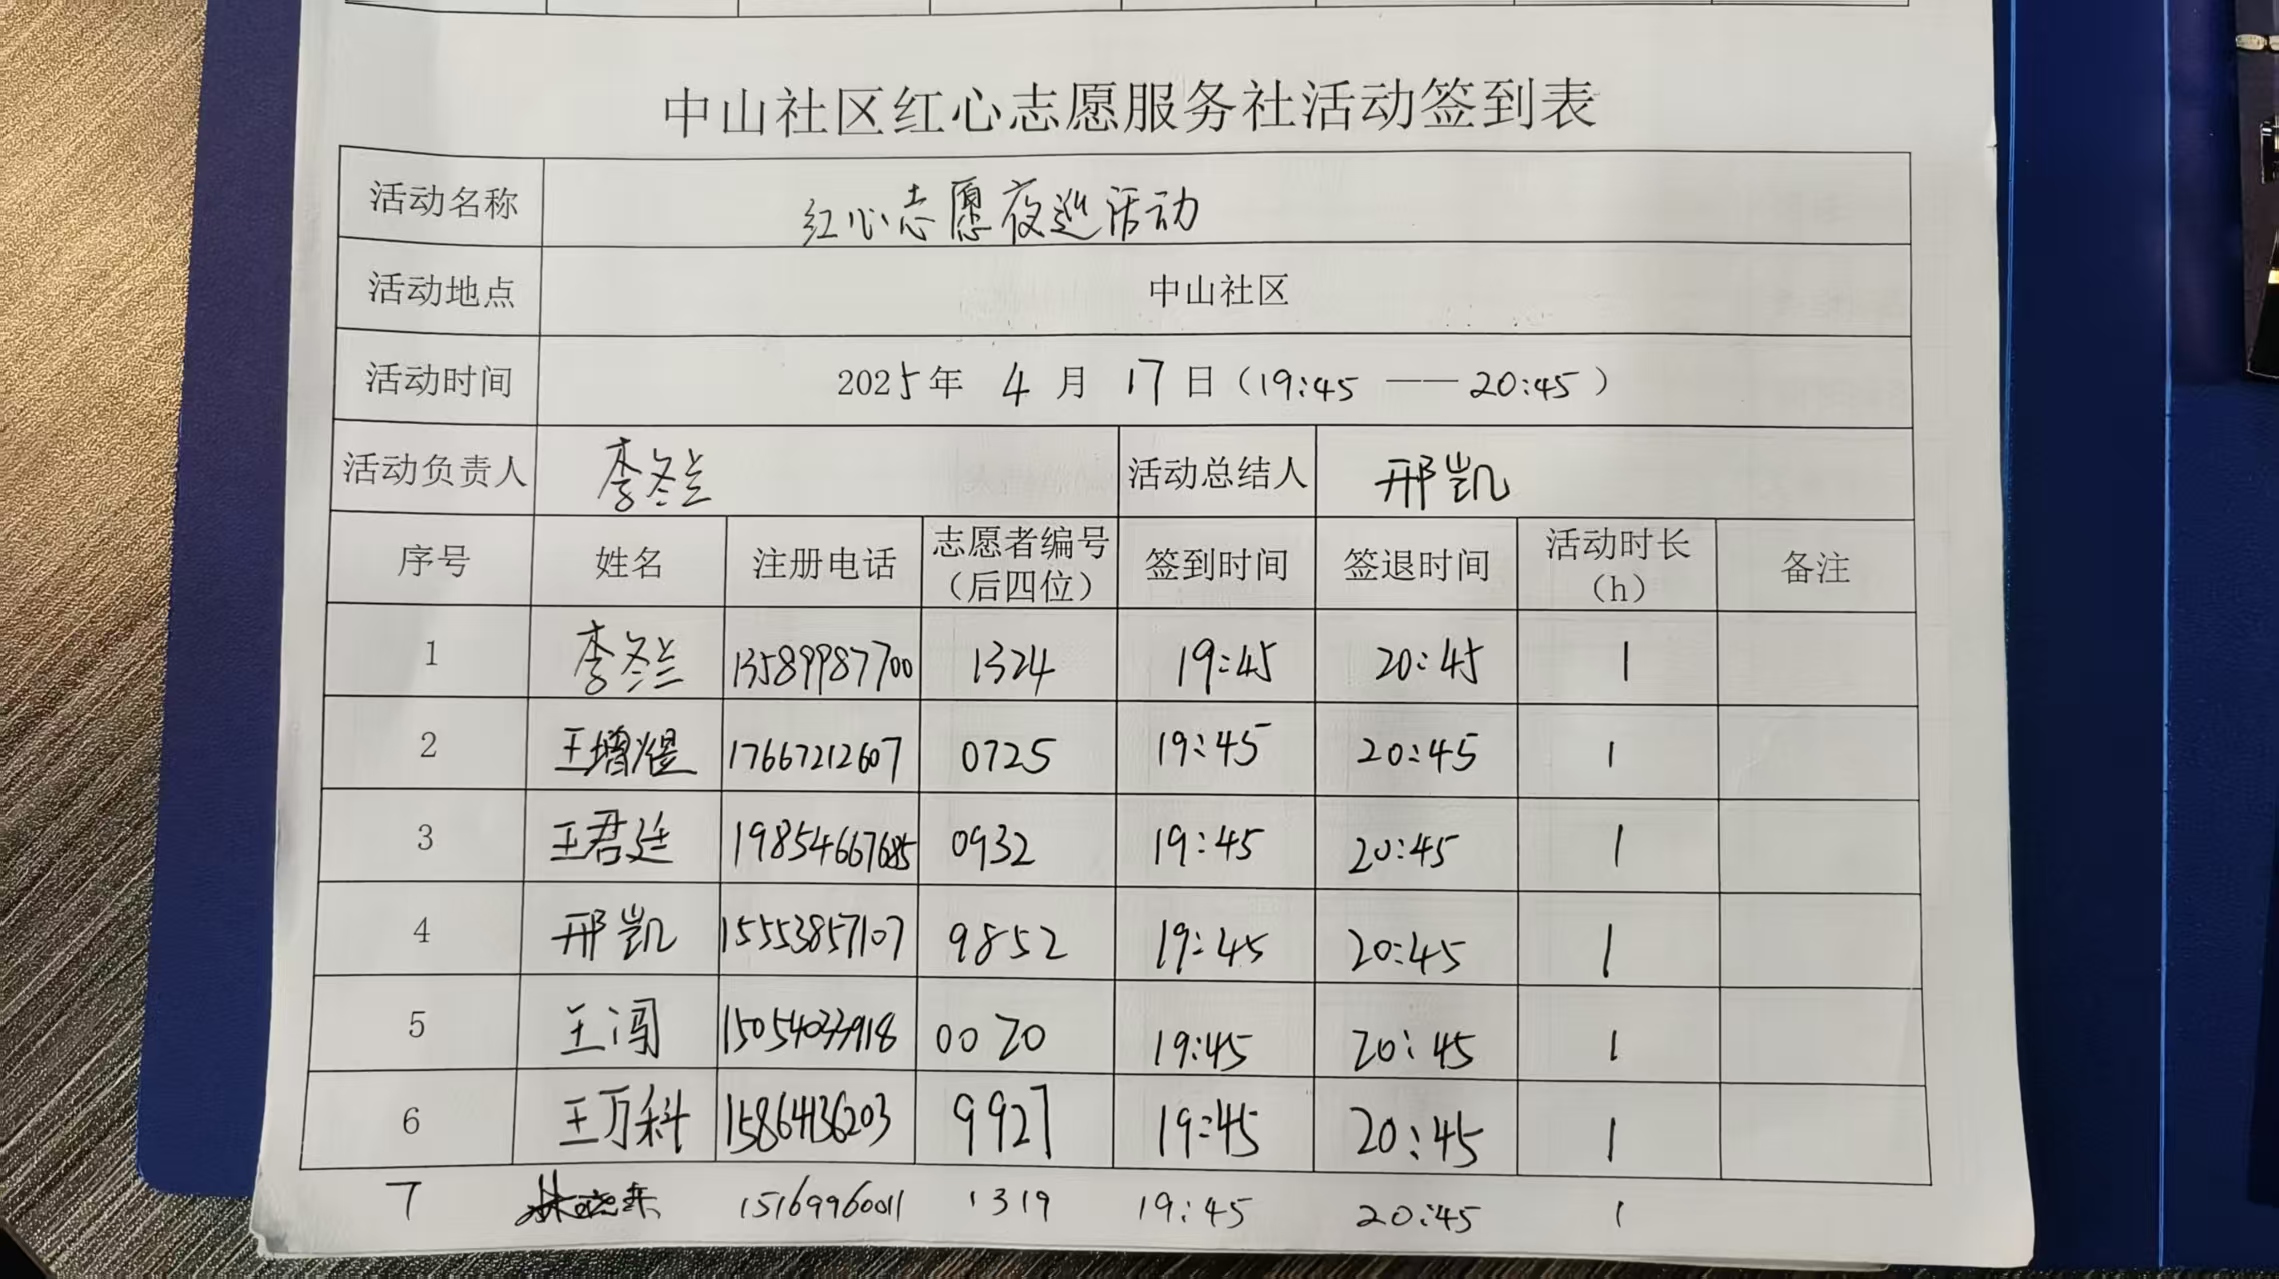 中山社区红心志愿服务社活动签到表
活动名称 红心志愿夜巡活动
活动地点 中山社区
活动时间 2025年 4 月 17 日（19:45 —— 20:45）
活动负责人 李冬兰 活动总结人 邢凯
序号 姓名 注册电话 志愿者编号（后四位） 签到时间 签退时间 活动时长（h） 备注
1 李冬兰 13589987700 1324 19:45 20:45 1
2 王增煜 17667212607 0725 19:45 20:45 1
3 王君廷 19854667685 0932 19:45 20:45 1
4 邢凯 15553857107 9852 19:45 20:45 1
5 王闯 15054033918 0020 19:45 20:45 1
6 王万科 15864136203 9927 19:45 20:45 1
7 15169960011 1319 19:45 20:45 1